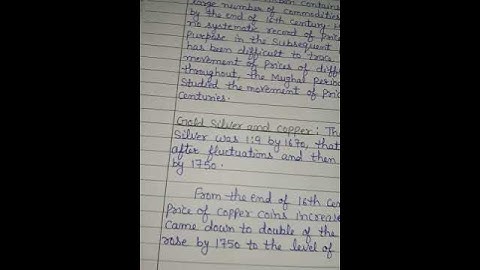 contains
large number of commodities
by the end of 16th century.
no systematic record of price
Purpose in the Subsequent
has been difficult to trace
movement of Prices of diff
throughout, the Mughal Period
Studed the movement of Pri
Centuries.
Gold Silver and copper: Th
Silver was 1:9 by 1670, that
after fluctuations and then
by 1750.
From the end of 16th cen
Price of copper coins increase
Came down to double of the
rose by 1750 to the level of